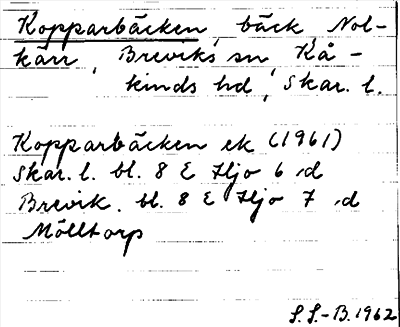 Kopparbäcken, bäck, Nol-
kärr, Breviks sn, Kå-
kinds hd, Skar. l.
Kopparbäcken ek (1961)
Skar. l. bl. 8 E Hjo 6 d
Brevik. bl. 8 E Hjo 7 d
Mölltorp
S.S.-B. 1962